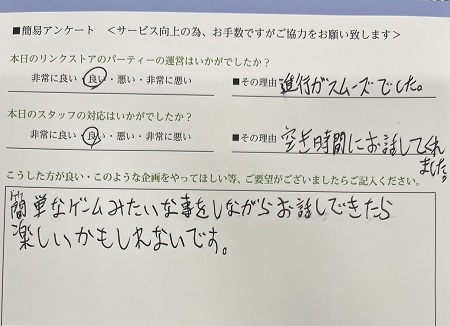 ■簡易アンケート ＜サービス向上の為、お手数ですがご協力をお願い致します＞
本日のリンクストアのパーティーの運営はいかがでしたか？
非常に良い・良い・悪い・非常に悪い ■その理由 進行がスムーズでした。
本日のスタッフの対応はいかがでしたか？
非常に良い・良い・悪い・非常に悪い ■その理由 空き時間にお話してくれ
ました。
こうした方が良い・このような企画をやってほしい等、ご要望がございましたらご記入ください。
簡単なゲームみたいな事をしながらお話しできたら
楽しいかもしれないです。